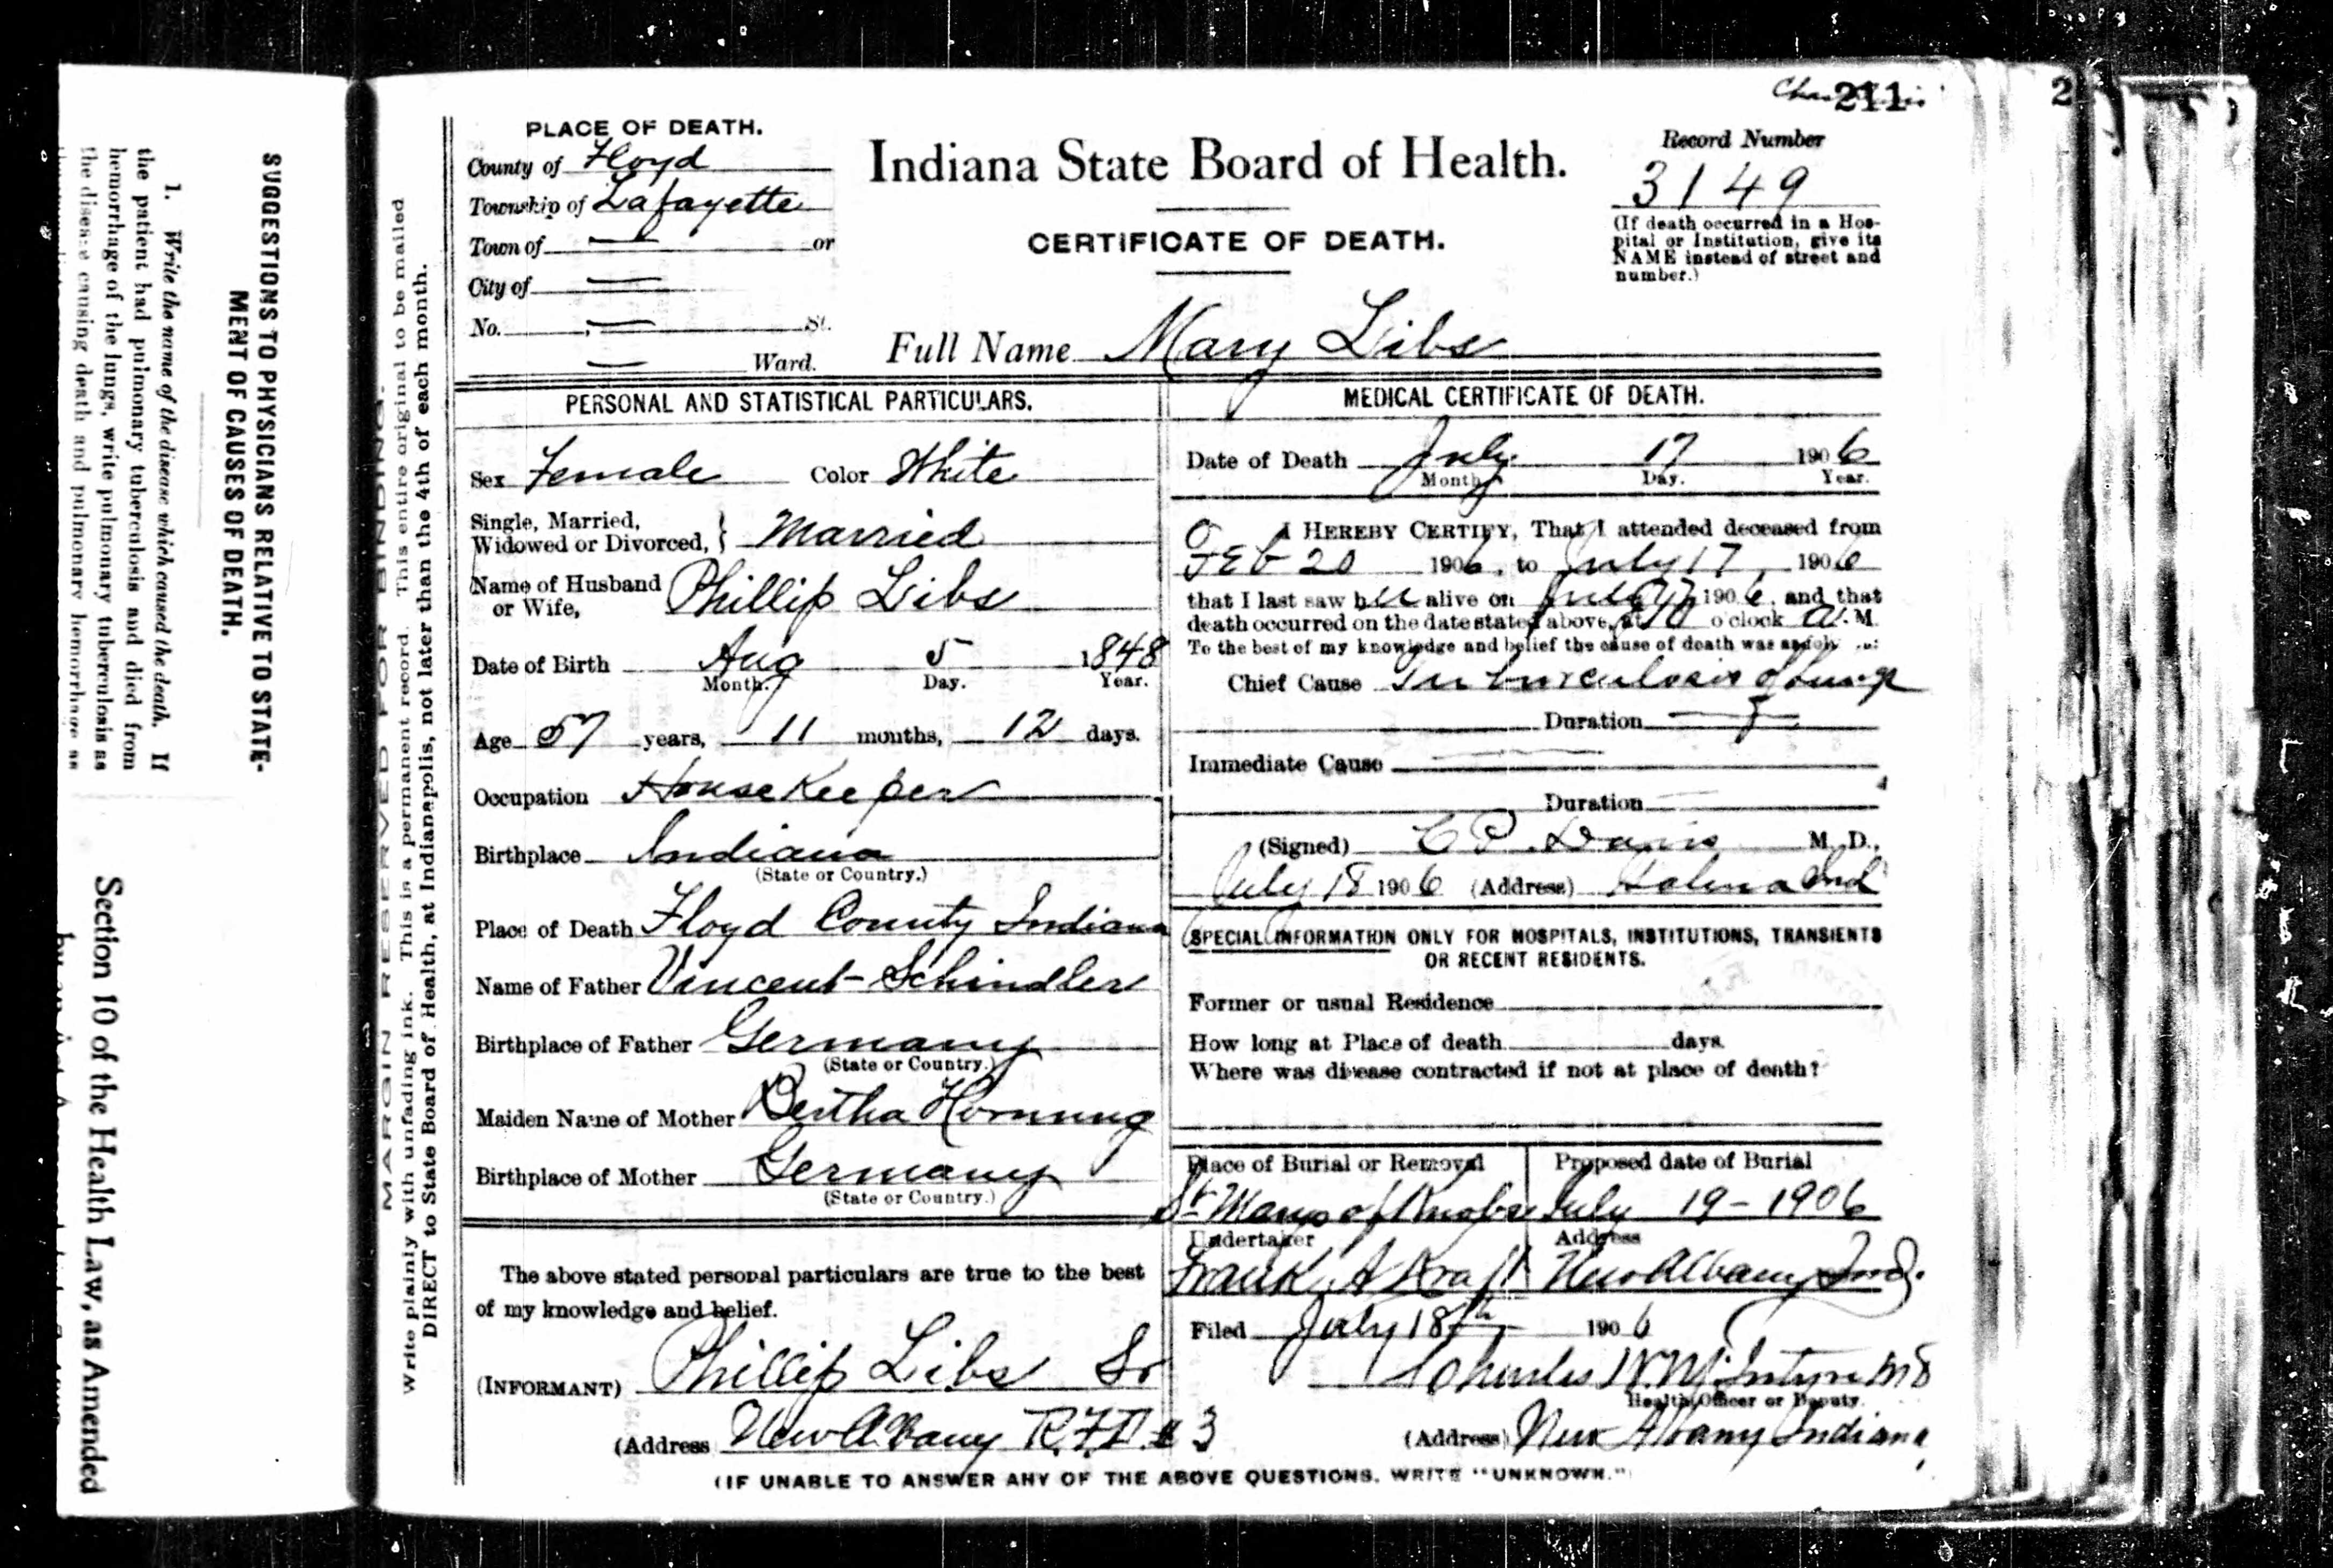 SUGGESTIONS TO PHYSICIANS RELATIVE TO STATE-
MENT OF CAUSES OF DEATH.
1. Write the name of the disease which caused the death. If
the patient had pulmonary tuberculosis and died from
hemorrhage of the lungs, write pulmonary tuberculosis as
the disease causing death and pulmonary hemorrhage as
Section 10 of the Health Law, as Amended
MARGIN RESERVED FOR BINDING.
Write plainly with unfading ink. This is a permanent record. This entire original to be mailed
DIRECT to State Board of Health, at Indianapolis, not later than the 4th of each month.
211
2
PLACE OF DEATH.
County of Floyd
Township of Lafayette
Town of — or
City of —
No. , — St.
— Ward.
Indiana State Board of Health.
CERTIFICATE OF DEATH.
Record Number
3149
(If death occurred in a Hos-
pital or Institution, give its
NAME instead of street and
number.)
Full Name Mary Libs
PERSONAL AND STATISTICAL PARTICULARS.
Sex Female Color White
Single, Married,
Widowed or Divorced, } Married
Name of Husband
or Wife, Phillip Libs
Date of Birth Aug 5 1848
Month. Day. Year.
Age 57 years, 11 months, 12 days.
Occupation House Keeper
Birthplace Indiana
(State or Country.)
Place of Death Floyd County Indiana
Name of Father Vincent Schindler
Birthplace of Father Germany
(State or Country.)
Maiden Name of Mother Bertha Hornung
Birthplace of Mother Germany
(State or Country.)
The above stated personal particulars are true to the best
of my knowledge and belief.
(INFORMANT) Phillip Libs Sr
(Address New Albany R.F.D. # 3
MEDICAL CERTIFICATE OF DEATH.
Date of Death July 17 1906
Month Day. Year.
I HEREBY CERTIFY, That I attended deceased from
Feb 20 1906, to July 17, 1906
that I last saw her alive on July 17, 1906, and that
death occurred on the date stated above, at o'clock A. M.
To the best of my knowledge and belief the cause of death was as
Chief Cause Tuburculosis of lungs
Duration ?
Immediate Cause
Duration
(Signed) C P Davis M. D.,
July 18 1906 (Address) Galena Ind
SPECIAL INFORMATION ONLY FOR HOSPITALS, INSTITUTIONS, TRANSIENTS
OR RECENT RESIDENTS.
Former or usual Residence
How long at Place of death days.
Where was disease contracted if not at place of death?
Place of Burial or Removal Proposed date of Burial
St Marys of Knobs July 19-1906
Undertaker Address
Frank A Kraft New Albany Ind.
Filed July 18th 1906
Charles W. McIntyre MD
Health Officer or Deputy.
(Address) New Albany Indiana
(IF UNABLE TO ANSWER ANY OF THE ABOVE QUESTIONS, WRITE "UNKNOWN.")